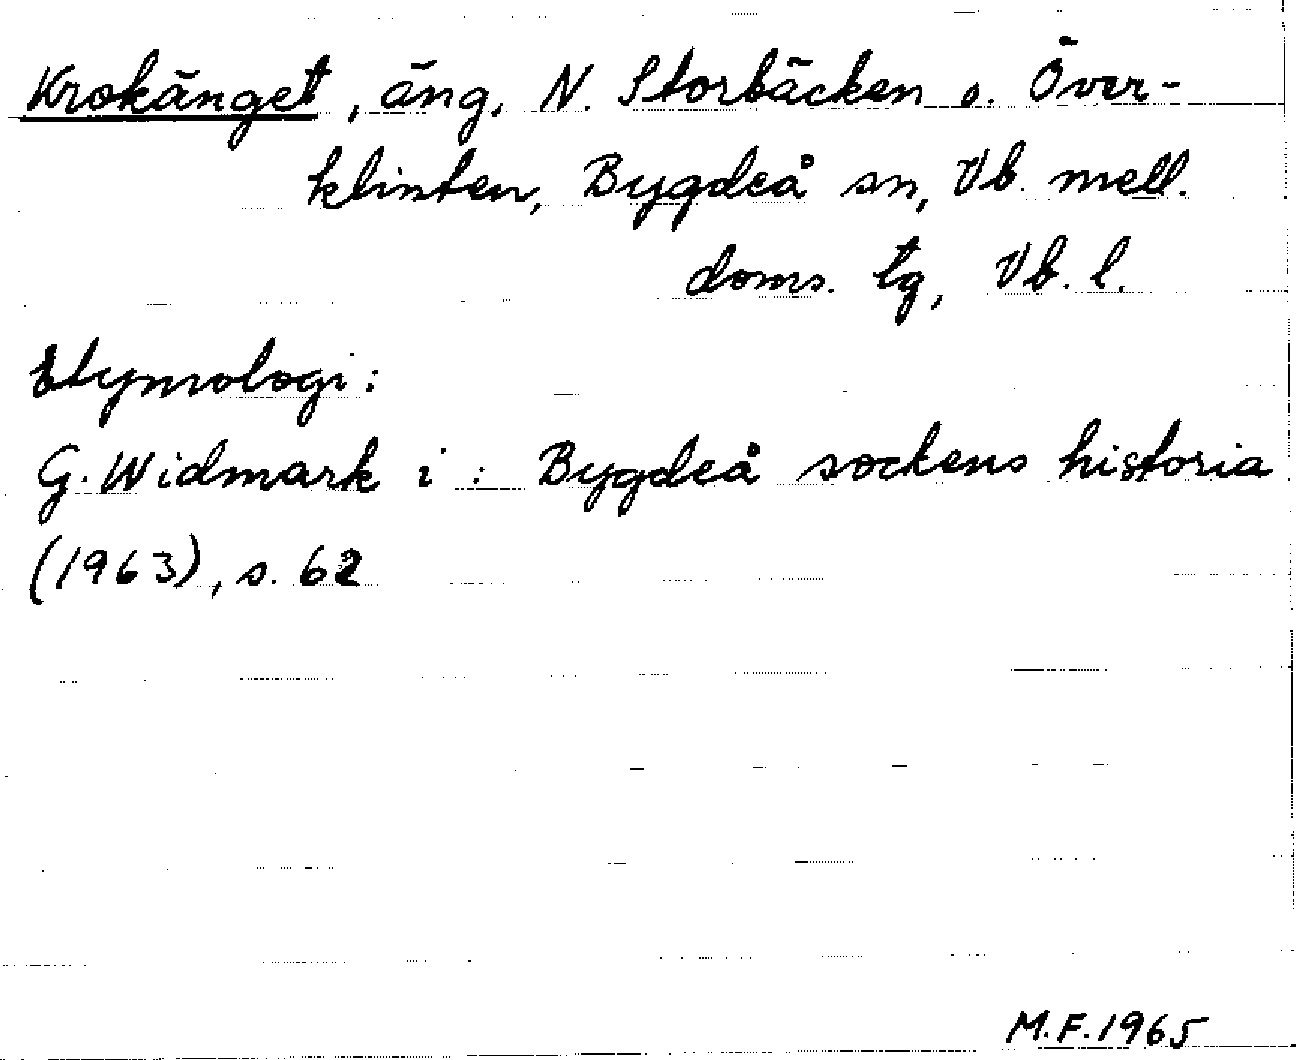 Krokänget, äng, N. Storbäcken o. Över-
klinten, Bygdeå sn, Vb. mell.
doms. tg, Vb. l.
Etymologi:
G. Widmark i: Bygdeå sockens historia
(1963), s. 62
M.F. 1965